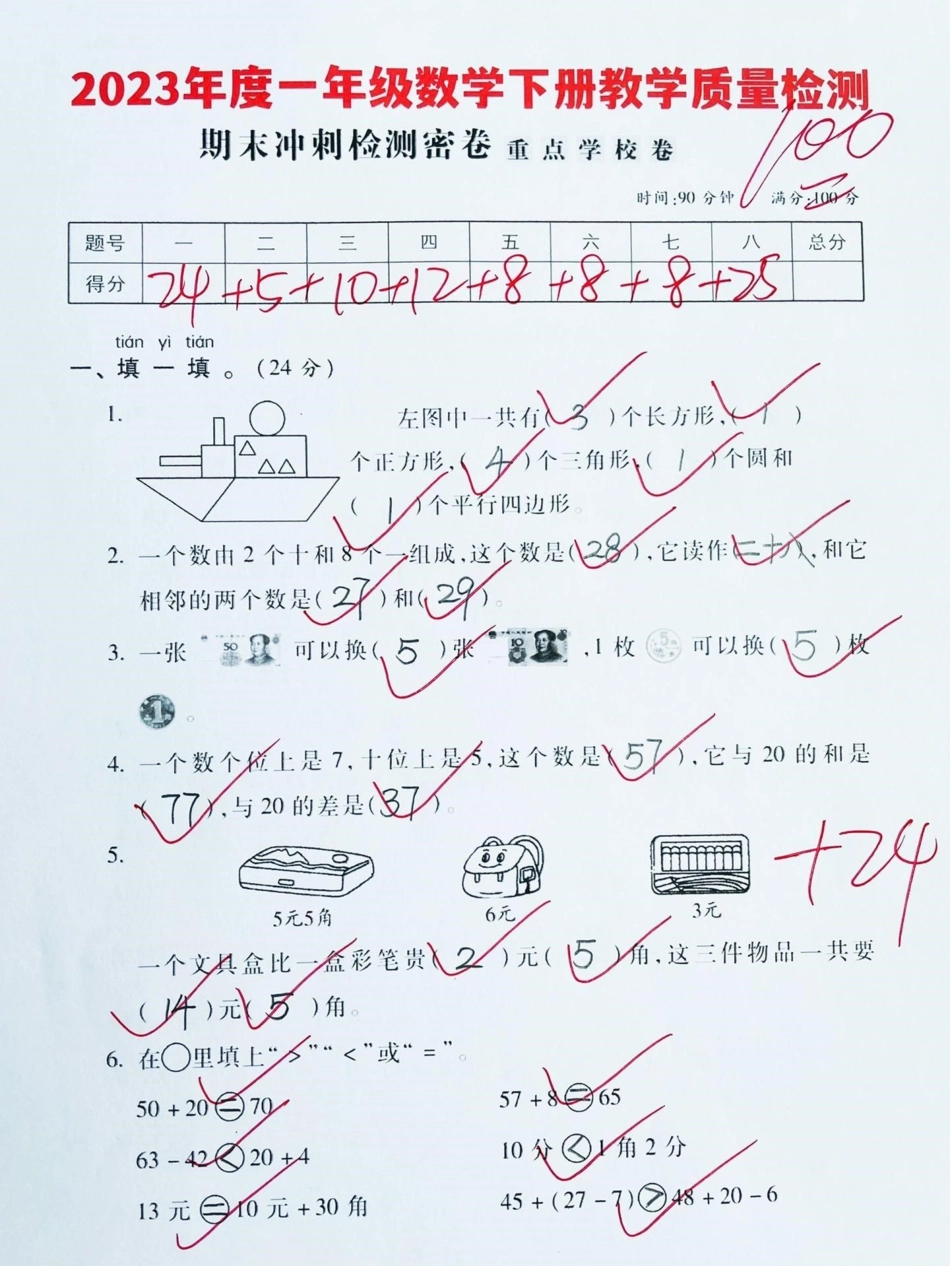 2023年度一年级数学下册教学质量检测
期末冲刺检测密卷 重点学校卷
100
时间:90分钟 满分:100分
题号 一 二 三 四 五 六 七 八 总分
得分 24 +5 +10 +12 +8 +8 +8 +25
tián yì tián
一、填一填。(24分)
1.
左图中一共有( 3 )个长方形,( 1 )
个正方形,( 4 )个三角形,( 1 )个圆和
( 1 )个平行四边形。
2. 一个数由2个十和8个一组成,这个数是(28),它读作(二十八),和它
相邻的两个数是( 27 )和( 29 )。
3. 一张 50 可以换( 5 )张 10 ,1枚 5 可以换( 5 )枚
1 。
4. 一个数个位上是7,十位上是5,这个数是(57),它与20的和是
(77),与20的差是(37)。
5.
+24
5元5角 6元 3元
一个文具盒比一盒彩笔贵( 2 )元( 5 )角,这三件物品一共要
( 14 )元( 5 )角。
6. 在○里填上“>”“<”或“=”。
50+20=70 57+8=65
63-42<20+4 10分<1角2分
13元=10元+30角 45+(27-7)>48+20-6